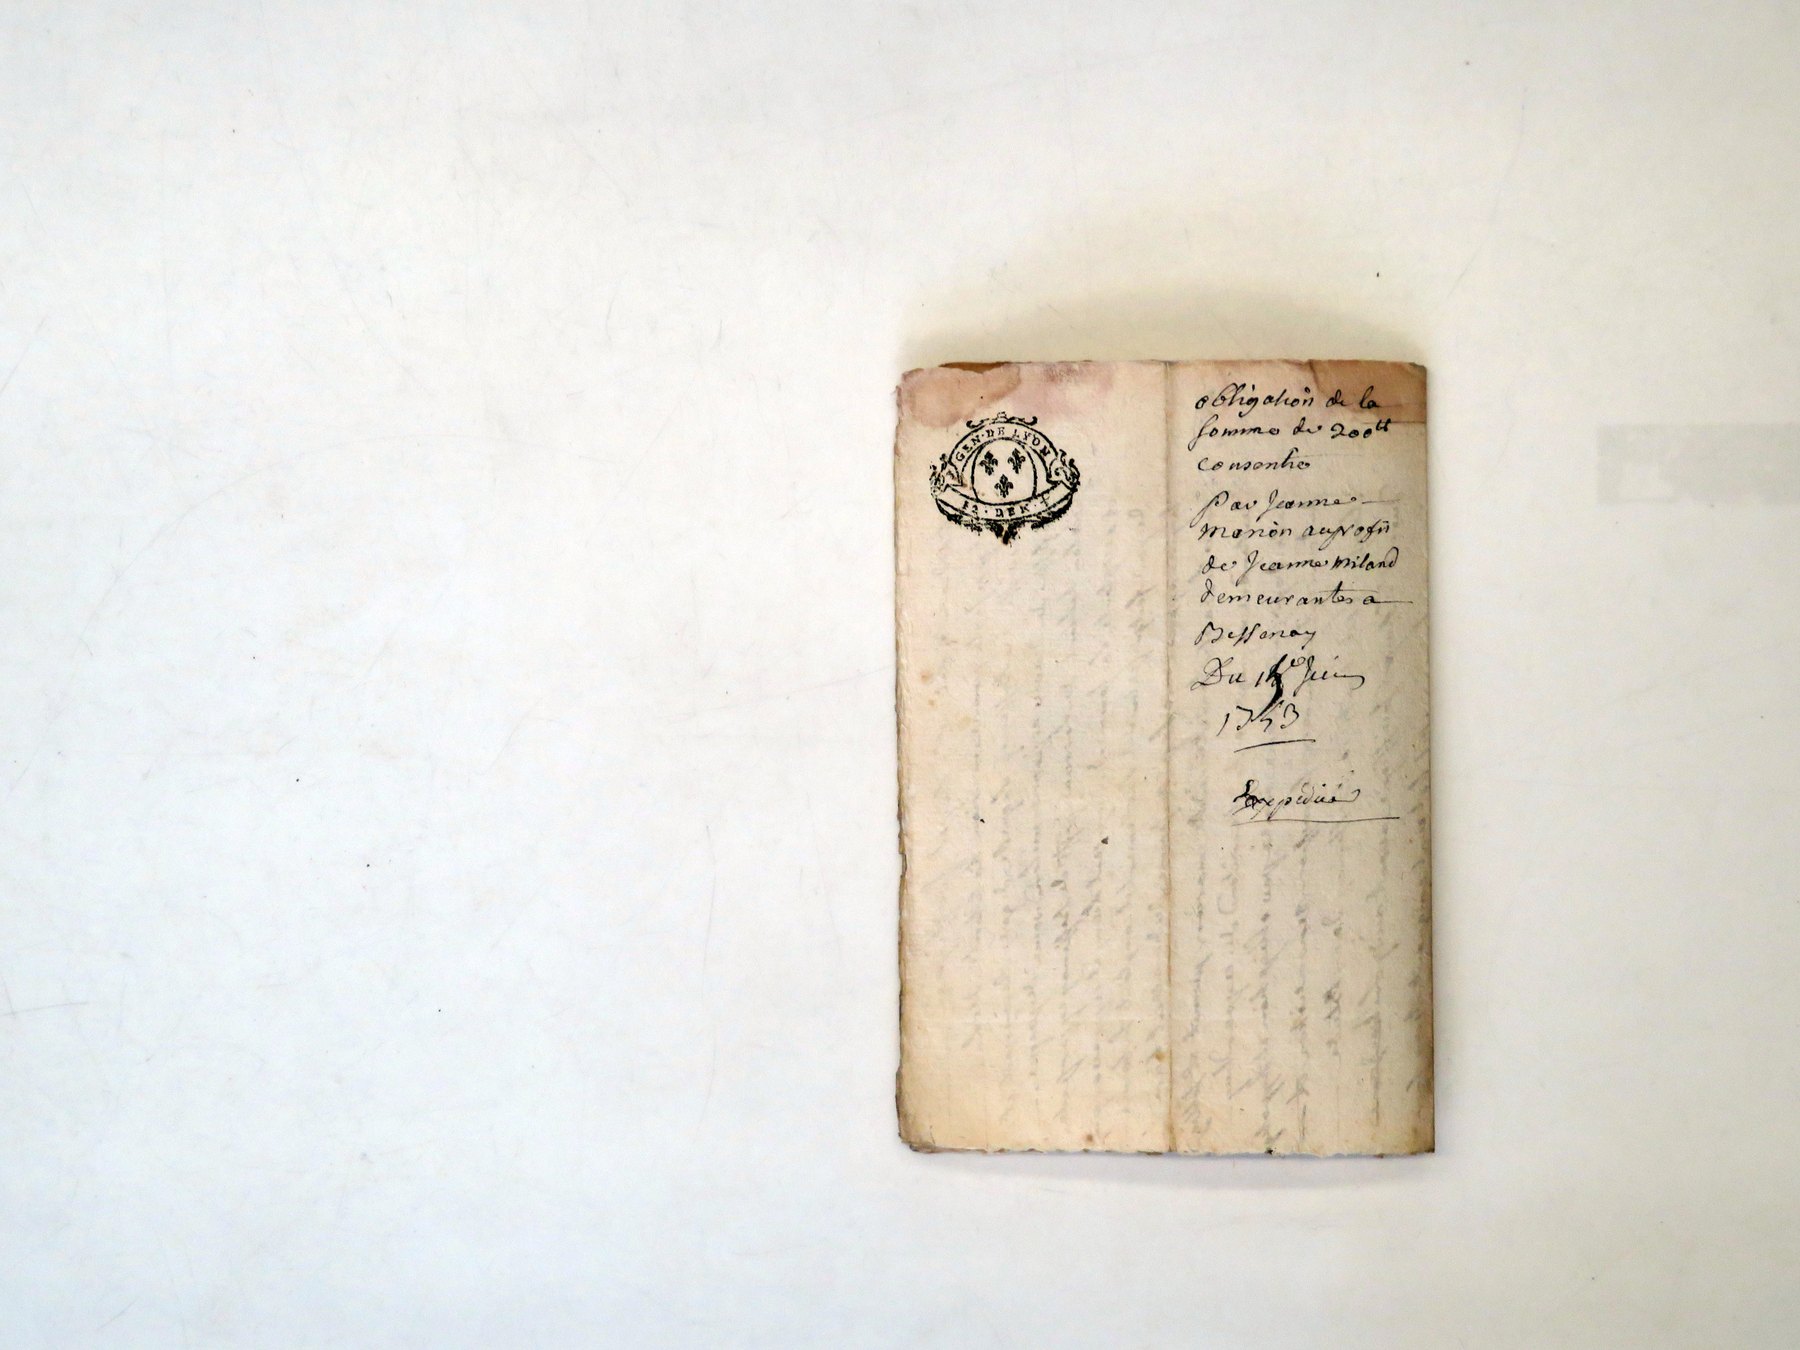 GEN·DE LYON
12·DEN·
obligation de la
somme de 200tt
consentie
Par Jeanne
manon au profit
de Jeanne miland
demeurantes a
Bessenay
Du Juin
1753
Expediée